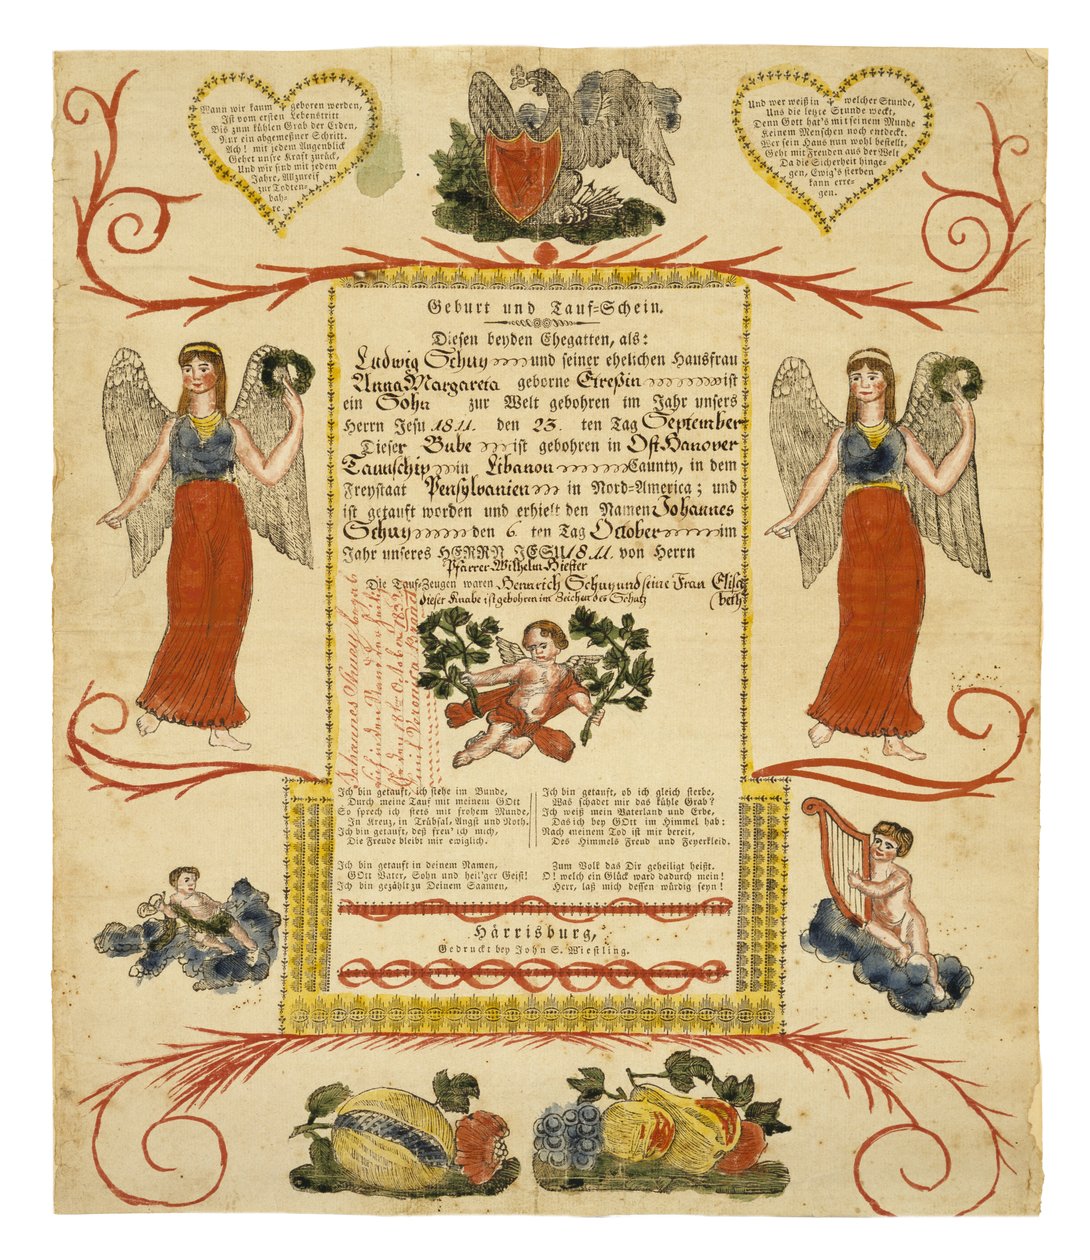 Wann wir kaum geboren werden,
Ist vom ersten Lebenstritt
Bis zum kühlen Grab der Erden,
Nur ein abgemeßner Schritt.
Ach! mit jedem Augenblick
Gehet unsre Kraft zurück,
Und wir sind mit jedem
Jahre, Allzureif
zur Todten-
bah-
re.
Und wer weiß in welcher Stunde,
Uns die letzte Stunde weckt,
Denn Gott hat's mit seinem Munde
Keinem Menschen noch entdeckt.
Wer sein Haus nun wohl bestellt,
Geht mit Freuden aus der Welt
Da die Sicherheit hinge-
gen, Ewig's sterben
kann erre-
gen.
Geburt und Tauf=Schein.
Diesen beyden Ehegatten, als:
Ludwig Schuy und seiner ehelichen Hausfrau
Anna Margareta geborne ist
ein Sohn zur Welt gebohren im Jahr unsers
Herrn Jesu 18.11. den 23. ten Tag September
Dieser Bube ist gebohren in Ost Hanover
Taunschip in Libanon Caunty, in dem
Freystaat Pensylvanien in Nord=America; und
ist getauft worden und erhielt den Namen Johannes
Schuy den 6 ten Tag October im
Jahr unseres HERRN JESU 18.11. von Herrn
Pfarrer Wilhelm Hiester
Die Tauf=Zeugen waren Heinrich Schuy und seine Frau Elisa
dieser Knabe ist gebohren im Zeichen des Schütz (beth
Johannes Shuey begab
October 1832
mit Veronica
Ich bin getauft, ich stehe im Bunde,
Durch meine Tauf mit meinem GOtt
So sprech ich stets mit frohem Munde,
In Kreuz, in Trübsal, Angst und Noth.
Ich bin getauft, deß freu' ich mich,
Die Freude bleibt mir ewiglich.
Ich bin getauft in deinem Namen,
GOtt Vater, Sohn und heil'ger Geist!
Ich bin gezählt zu Deinem Saamen,
Ich bin getauft, ob ich gleich sterbe,
Was schadet mir das kühle Grab?
Ich weiß mein Vaterland und Erbe,
Das ich bey GOtt im Himmel hab:
Nach meinem Tod ist mir bereit,
Des Himmels Freud und Feyerkleid.
Zum Volk das Dir geheiligt heißt.
O! welch ein Glück ward dadurch mein!
Herr, laß mich dessen würdig seyn!
Härrisburg,
Gedruckt bey John S. Wiestling.